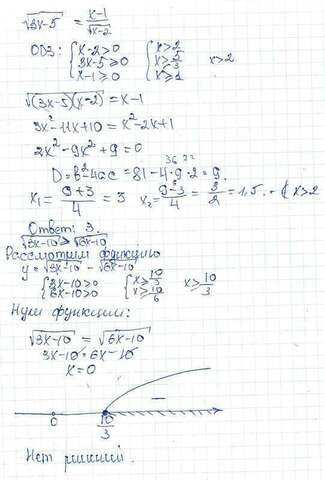 √3x-5 = x-1/√x-2
ОДЗ: { x-2>0 { x>2
3x-5≥0 x≥5/3 x>2
x-1≥0 x≥1
√(3x-5)(x-2) = x-1
3x²-11x+10 = x²-2x+1
2x²-9x+9=0
D=b²-4ac = 81-4·9·2=9.
x₁ = 9+3/4 = 3 x₂ = 9-3/4 = 3/2 = 1,5 - ∉ x>2
Ответ: 3.
√3x-10 > √6x-10
Рассмотрим функцию
y = √3x-10 - √6x-10
{ 3x-10≥0 { x≥10/3 x≥10/3
6x-10≥0 x≥10/6
Нули функции:
√3x-10 = √6x-10
3x-10=6x-10
x=0
0 10/3 -
Нет решений.